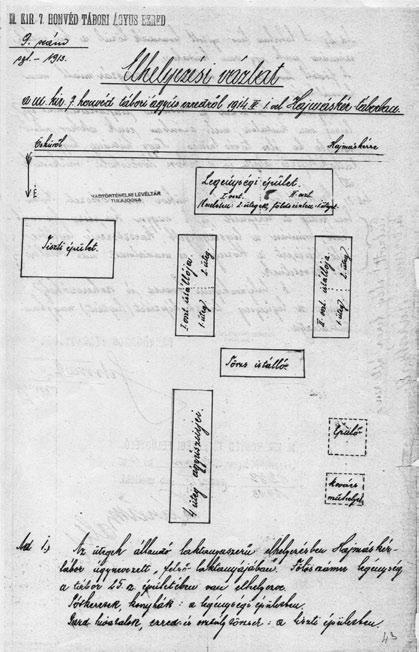 M. KIR. 7. HONVÉD TÁBORI ÁGYUS EZRED
9. szám
1913.
Elhelyezési vázlat
a m. kir. 7. honvéd tábori ágyús ezredről 1914. 1. val Hajmáskér táborban.
Öskűről
Hajmáskérre
É
HADTÖRTÉNELMI LEVÉLTÁR
TULAJDONA
Legénységi épület.
I. oszt. II. oszt.
Tiszti épület.
I. oszt. istállója.
1. üteg 2. üteg
II. oszt. istállója.
1. üteg 2. üteg
Törzs istálló.
4 üteg ágyúszínjei.
Épülő
kovács
műhely
Ad 1, Az ütegek állandó laktanyaszerű elhelyezésben Hajmáskér-
tábor úgynevezett "felső laktanyájában". Főlétszámos legénység
a tábor 25. a épületében van elhelyezve.
konyhák: a legénységi épületben.
ezred és osztály : a tiszti épületben.
43